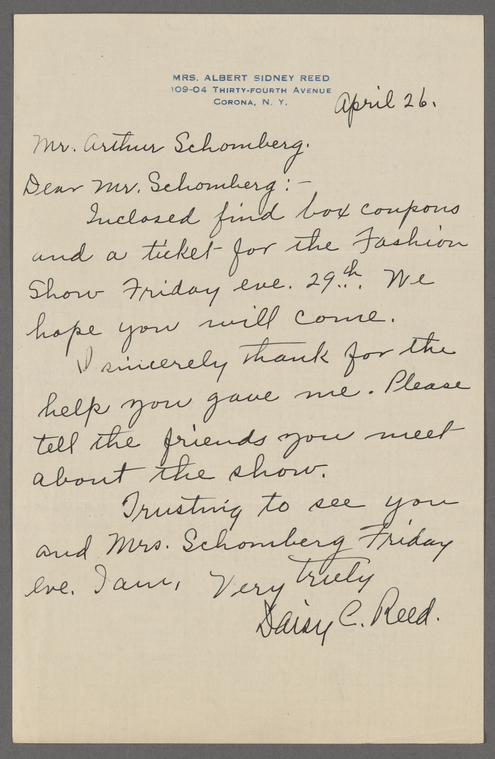 MRS. ALBERT SIDNEY REED
109-04 THIRTY-FOURTH AVENUE
CORONA, N. Y.
April 26.
Mr. Arthur Schomberg.
Dear Mr. Schomberg:-
Inclosed find box coupons
and a ticket for the Fashion
Show Friday eve. 29th. We
hope you will come.
I sincerely thank for the
help you gave me. Please
tell the friends you meet
about the show.
Trusting to see you
and Mrs. Schomberg Friday
eve. I am, Very truly
Daisy C. Reed.